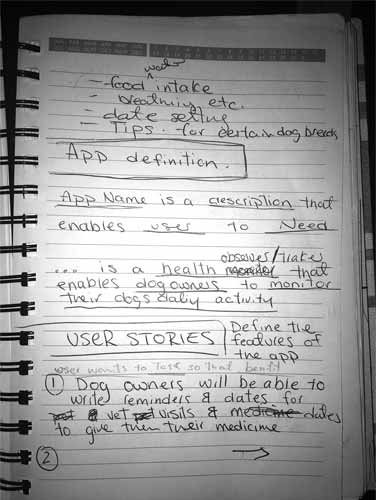 water
– food intake
– breathing etc.
– date setting
– Tips. for certain dog breeds
App definition.
App Name is a description that
enables user to Need
observer/traker
... is a health monitor that
enables dog owners to monitor
their dogs daily activity
USER STORIES
Define the
features of
the app
user wants to task so that benefit
① Dog owners will be able to
write reminders & dates for
vet visits & medicine dates
to give them their medicine
②